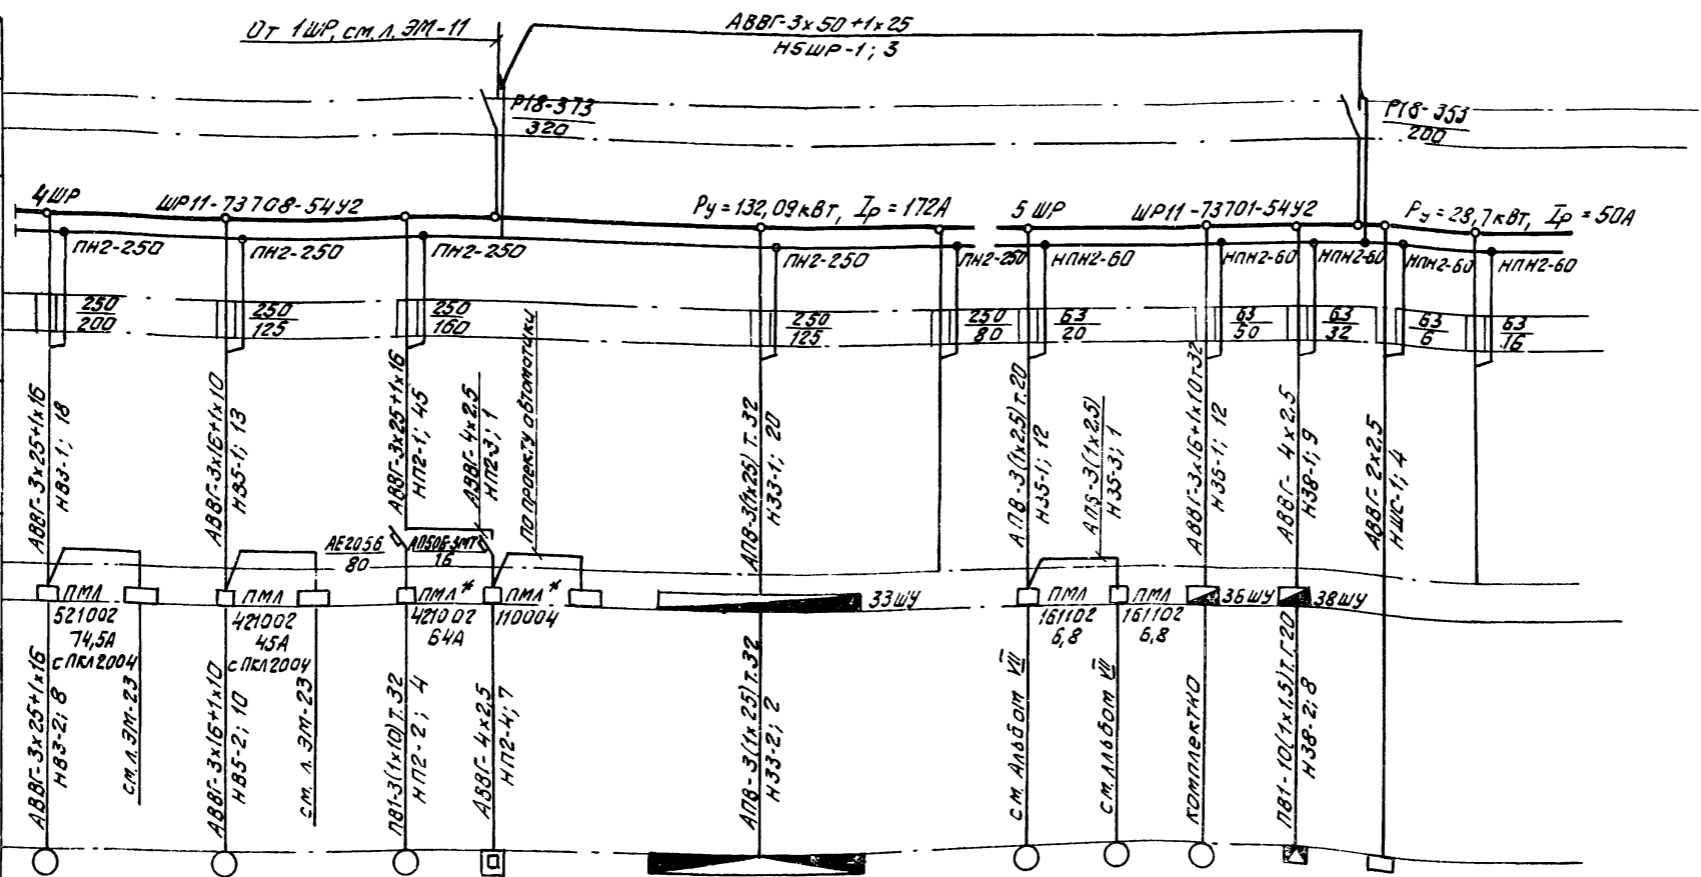 От 1ШР, см. л. ЭМ-11
АВВГ-3х50+1х25
Н5ШР-1; 3
Р18-373
320
Р18-353
200
4ШР
ШР11-73708-54У2
Ру=132,09кВт, Iр=172А
5 ШР
ШР11-73701-54У2
Ру=28,7кВт, Iр=50А
ПН2-250
ПН2-250
ПН2-250
ПН2-250
ПН2-250
НПН2-60
НПН2-60
НПН2-60
НПН2-60
НПН2-60
250
200
250
125
250
160
250
125
250
80
63
20
63
50
63
32
63
6
63
16
АВВГ-3х25+1х16
НВ3-1; 18
АВВГ-3х16+1х10
НВ5-1; 13
АВВГ-3х25+1х16
НП2-1; 45
АВВГ-4х2,5
НП2-3; 1
по проекту автоматики
АПВ-3(1х25) т.32
Н33-1; 20
АПВ-3(1х2,5) т.20
Н35-1; 12
АПВ-3(1х2,5)
Н35-3; 1
АВВГ-3х16+1х10т.32
Н36-1; 12
АВВГ-4х2,5
Н38-1; 9
АВВГ-2х2,5
НЩС-1; 4
АЕ2056
80
АП50Б-3МТ
16
ПМЛ
521002
74,5А
с ПКЛ2004
ПМЛ
421002
45А
с ПКЛ2004
ПМЛ*
421002
64А
ПМЛ*
110004
33ШУ
ПМЛ
161102
6,8
ПМЛ
161102
6,8
36ШУ
38ШУ
АВВГ-3х25+1х16
НВ3-2; 8
см. л. ЭМ-23
АВВГ-3х16+1х10
НВ5-2; 10
см. л. ЭМ-23
ПВ1-3(1х10) т.32
НП2-2; 4
АВВГ-4х2,5
НП2-4; 7
АПВ-3(1х25) т.32
Н33-2; 2
см. Альбом VII
см. Альбом VII
комплектно
ПВ1-10(1х1,5) т.Г20
Н38-2; 8